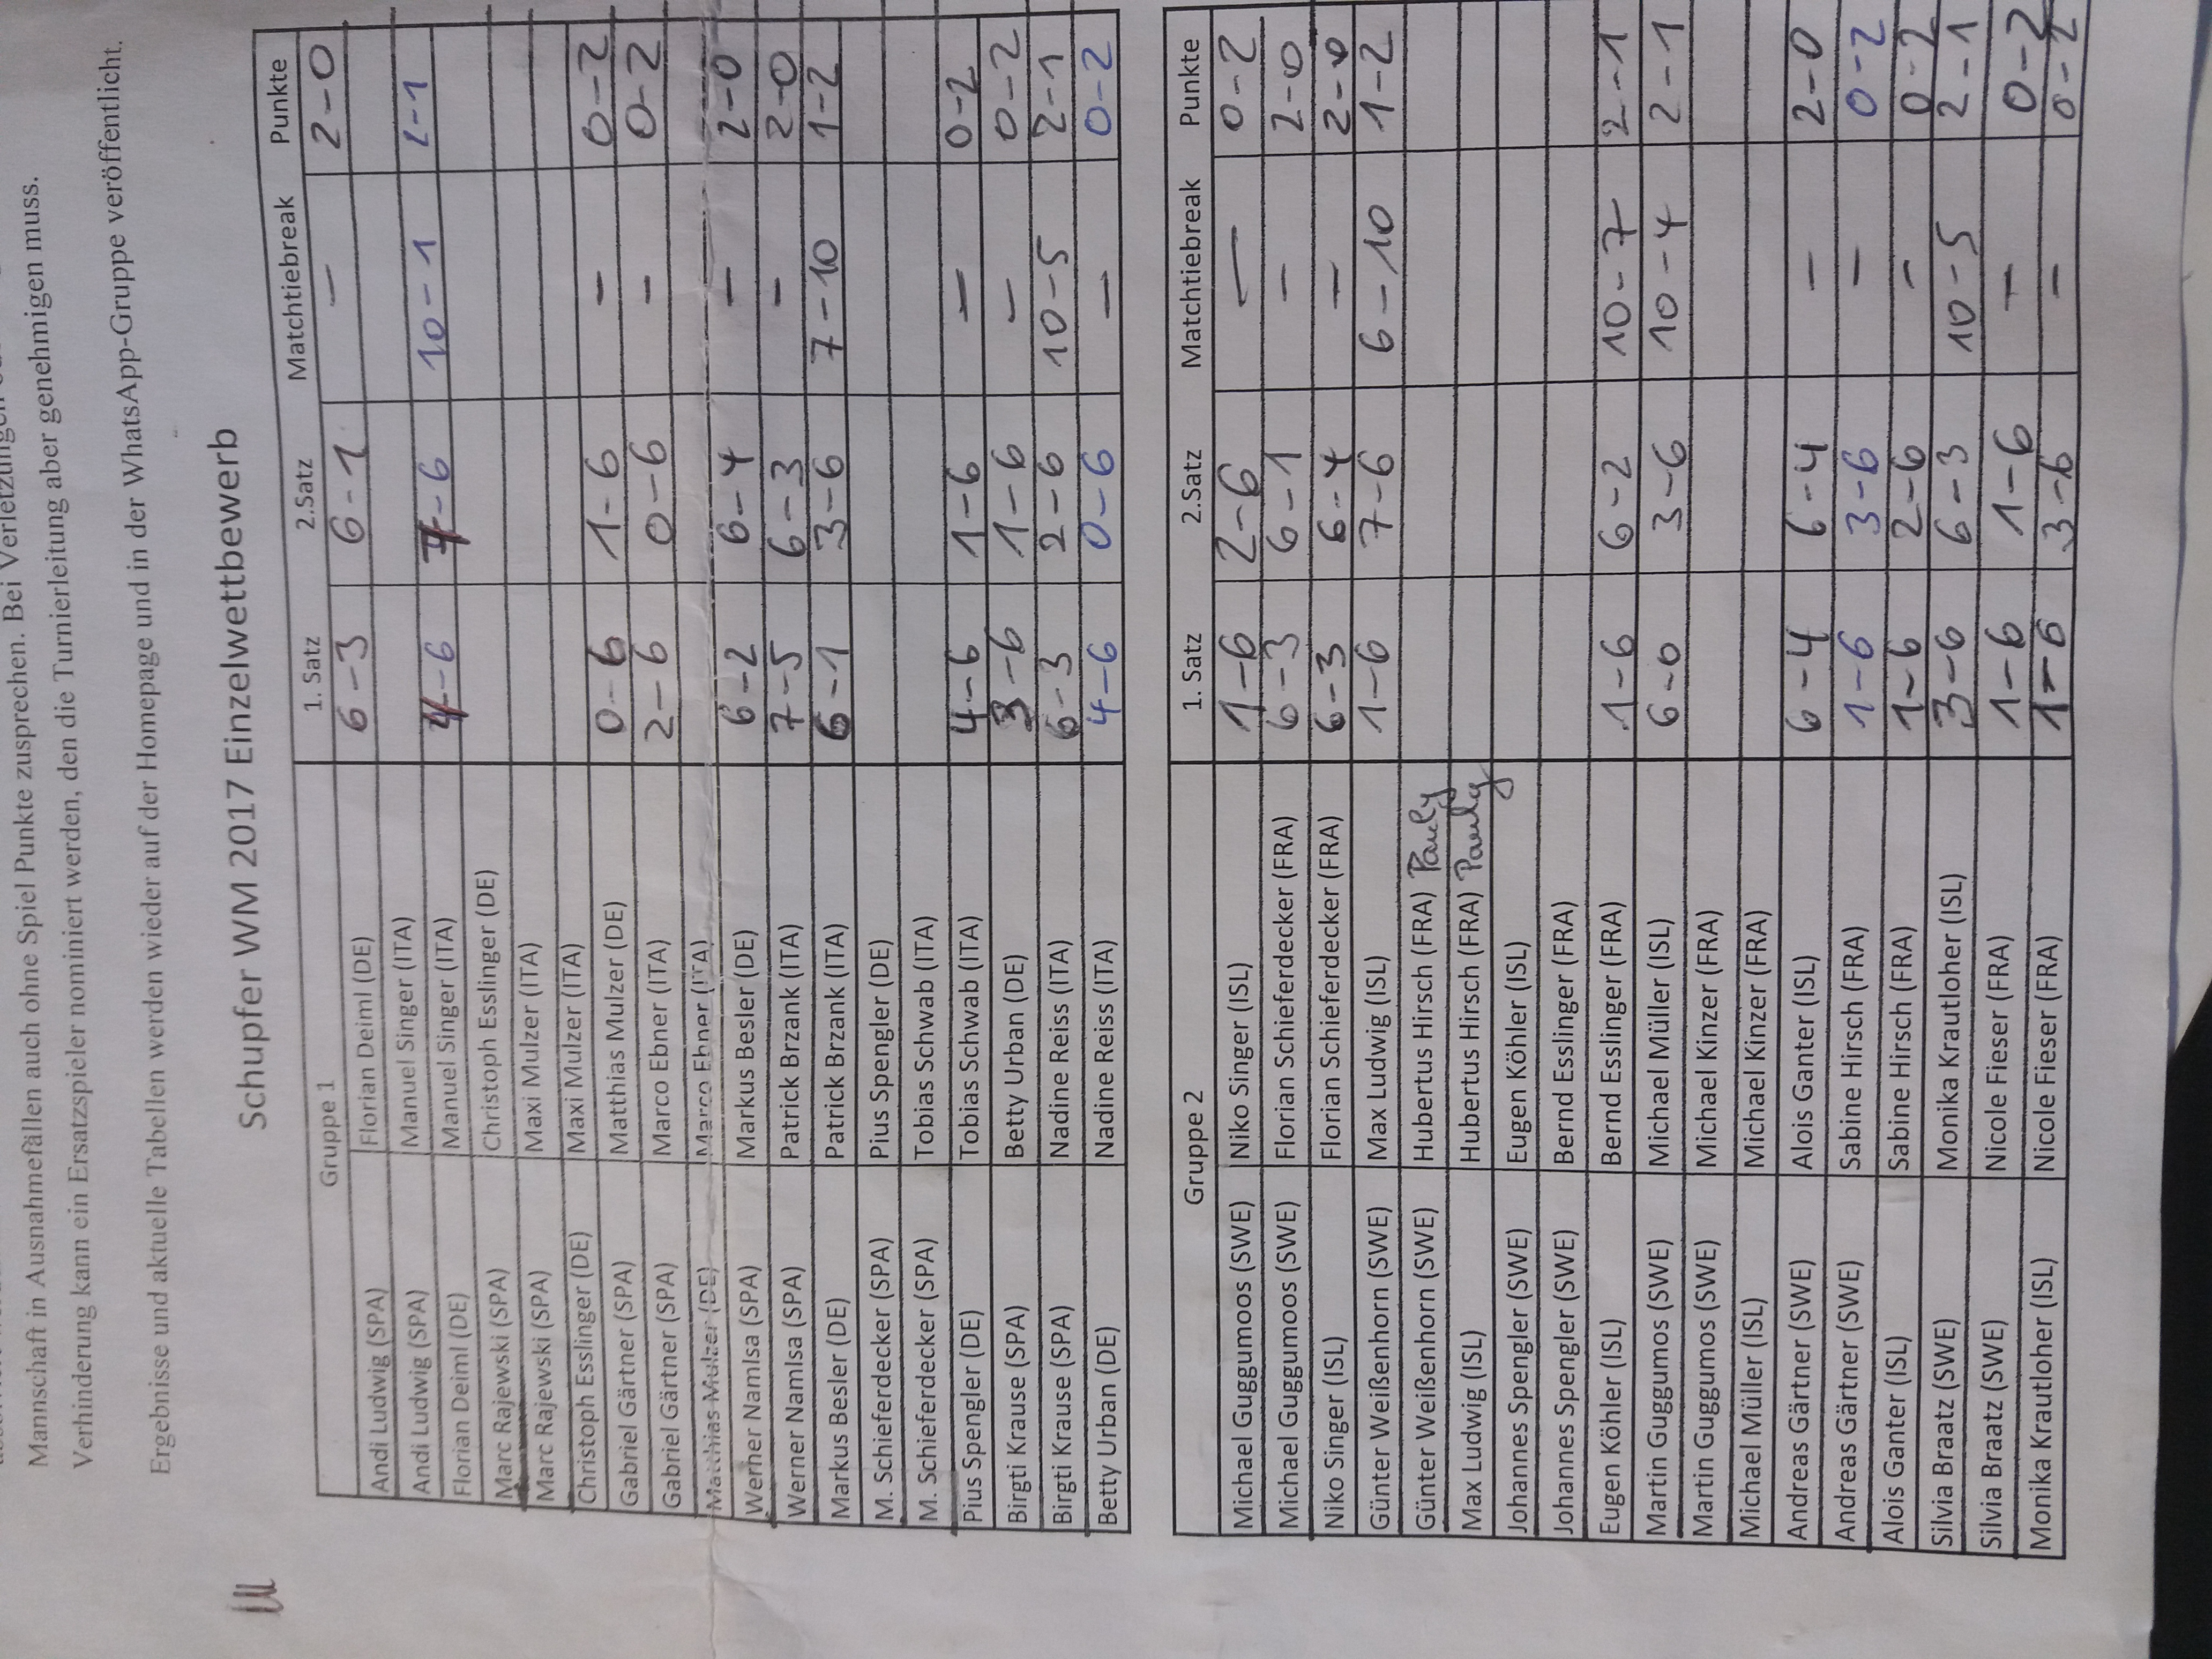 Mannschaft in Ausnahmefällen auch ohne Spiel Punkte zusprechen. Bei Verletzungen
Verhinderung kann ein Ersatzspieler nominiert werden, den die Turnierleitung aber genehmigen muss.
Ergebnisse und aktuelle Tabellen werden wieder auf der Homepage und in der WhatsApp-Gruppe veröffentlicht.
Schupfer WM 2017 Einzelwettbewerb
Gruppe 1 1. Satz 2.Satz Matchtiebreak Punkte
Andi Ludwig (SPA) Florian Deiml (DE) 6-3 6-1 - 2-0
Andi Ludwig (SPA) Manuel Singer (ITA)
Florian Deiml (DE) Manuel Singer (ITA) 4-6 -6 10-1 2-1
Marc Rajewski (SPA) Christoph Esslinger (DE)
Marc Rajewski (SPA) Maxi Mulzer (ITA)
Christoph Esslinger (DE) Maxi Mulzer (ITA)
Gabriel Gärtner (SPA) Matthias Mulzer (DE) 0-6 1-6 - 0-2
Gabriel Gärtner (SPA) Marco Ebner (ITA) 2-6 0-6 - 0-2
Matthias Mulzer (DE) Marco Ebner (ITA)
Werner Namlsa (SPA) Markus Besler (DE) 6-2 6-4 - 2-0
Werner Namlsa (SPA) Patrick Brzank (ITA) 7-5 6-3 - 2-0
Markus Besler (DE) Patrick Brzank (ITA) 6-1 3-6 7-10 1-2
M. Schieferdecker (SPA) Pius Spengler (DE)
M. Schieferdecker (SPA) Tobias Schwab (ITA)
Pius Spengler (DE) Tobias Schwab (ITA) 4-6 1-6 - 0-2
Birgti Krause (SPA) Betty Urban (DE) 3-6 1-6 - 0-2
Birgti Krause (SPA) Nadine Reiss (ITA) 6-3 2-6 10-5 2-1
Betty Urban (DE) Nadine Reiss (ITA) 4-6 0-6 - 0-2
Gruppe 2 1. Satz 2.Satz Matchtiebreak Punkte
Michael Guggumoos (SWE) Niko Singer (ISL) 1-6 2-6 - 0-2
Michael Guggumoos (SWE) Florian Schieferdecker (FRA) 6-3 6-1 - 2-0
Niko Singer (ISL) Florian Schieferdecker (FRA) 6-3 6-4 - 2-0
Günter Weißenhorn (SWE) Max Ludwig (ISL) 1-6 7-6 6-10 1-2
Günter Weißenhorn (SWE) Hubertus Hirsch (FRA) Pauly
Max Ludwig (ISL) Hubertus Hirsch (FRA) Pauly
Johannes Spengler (SWE) Eugen Köhler (ISL)
Johannes Spengler (SWE) Bernd Esslinger (FRA)
Eugen Köhler (ISL) Bernd Esslinger (FRA) 1-6 6-2 10-7 2-1
Martin Guggumos (SWE) Michael Müller (ISL) 6-0 3-6 10-4 2-1
Martin Guggumos (SWE) Michael Kinzer (FRA)
Michael Müller (ISL) Michael Kinzer (FRA)
Andreas Gärtner (SWE) Alois Ganter (ISL) 6-4 6-4 - 2-0
Andreas Gärtner (SWE) Sabine Hirsch (FRA) 1-6 3-6 - 0-2
Alois Ganter (ISL) Sabine Hirsch (FRA) 1-6 2-6 - 0-2
Silvia Braatz (SWE) Monika Krautloher (ISL) 3-6 6-3 10-5 2-1
Silvia Braatz (SWE) Nicole Fieser (FRA) 1-6 1-6 - 0-2
Monika Krautloher (ISL) Nicole Fieser (FRA) 1-6 3-6 - 0-2